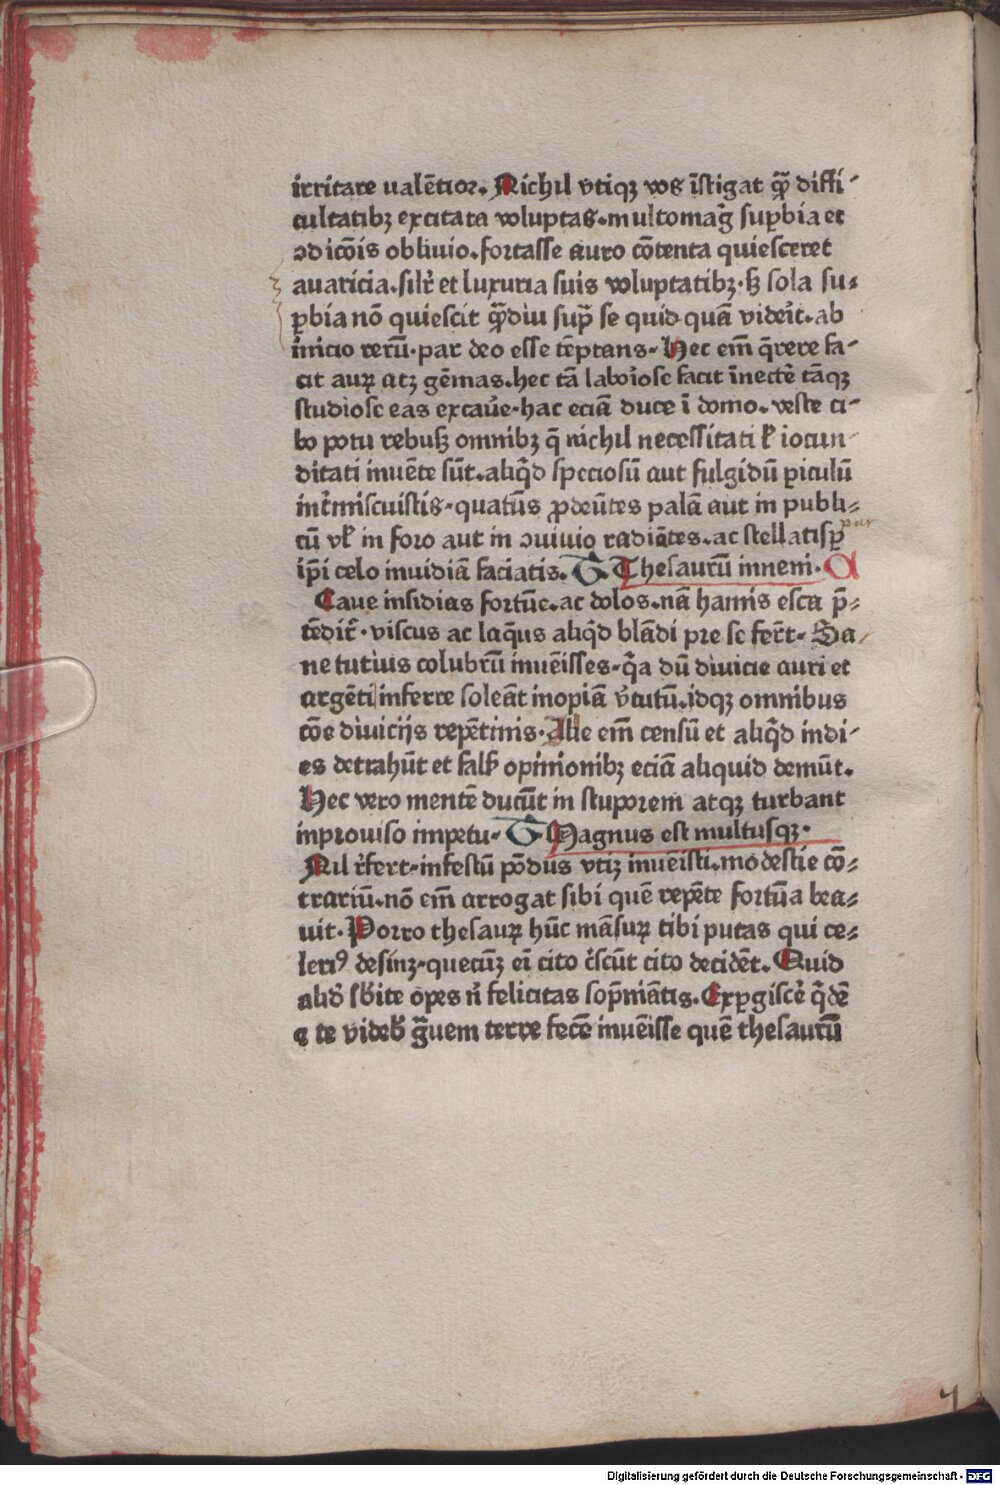 irritare ualētior. Nichil vtiqꝫ vos īstigat qͣ diffi-
cultatibꝫ excitata voluptas. multomaḡ suꝑbia et
ↄdicōis obliuio. fortasse auro cōtenta quiesceret
auaricia. silr̄ et luxuria suis voluptatibꝫ. sꝫ sola su-
ꝑbia nō quiescit qͣdiu supͣ se quid quā viderit. ab
inicio rerū. par deo esse tēptans. Hec em̄ q̄rere fa-
cit auꝝ atꝫ gēmas. hec tā laboriose facit īnectē tāqꝫ
studiose eas excau̅e. hac eciā duce ī domo. veste ci-
bo potu rebusꝫ omnibꝫ q̄ nichil necessitati ł iocun-
ditati inuēte sūt. aliqͥd speciosū aut fulgidū ꝑiculū
int̄miscuistis. quatūs ꝓdeūtes palā aut in publi-
cū vł in foro aut in ↄuiuio radiātes. ac stellatisꝑ
ip̄i celo inuidiā faciatis. G. Thesaurū inueni. A
Caue insidias fortūe. ac dolos. nā hamis esca p̄-
tēdit̄. viscus ac laq̄us aliqͥd blādi pre se fer̄t. Sa-
ne tutius colubrū inuēisses. qͥa dū diuicie auri et
argēti inferre soleāt inopiā v̄tutū. idqꝫ omnibus
cōe diuiciis repētinis. Alie em̄ censū et aliqͥd indi-
es detrahūt et falß opinionibꝫ eciā aliquid demūt.
Hec vero mentē ducūt in stuporem atqꝫ turbant
inprouiso impetu. G Magnus est multusqꝫ.
Nil r̄fert. infestū pōdus vtiꝫ inuēisti. modestie cō-
trariū. nō em̄ arrogat sibi quē repēte fortūa bea-
uit. Porro thesauꝝ hūc māsuꝝ tibi putas qui ce-
leriꝰ desinꝫ. quecūꝫ ei cito c̄scūt cito decidēt. Quid
alid̓ sb̓ite opes n̄ felicitas sop̄niātis. Exꝑgiscē qͥdē
⁊ te videb̓ gͣuem terre fecē inuēisse quē thesaurū